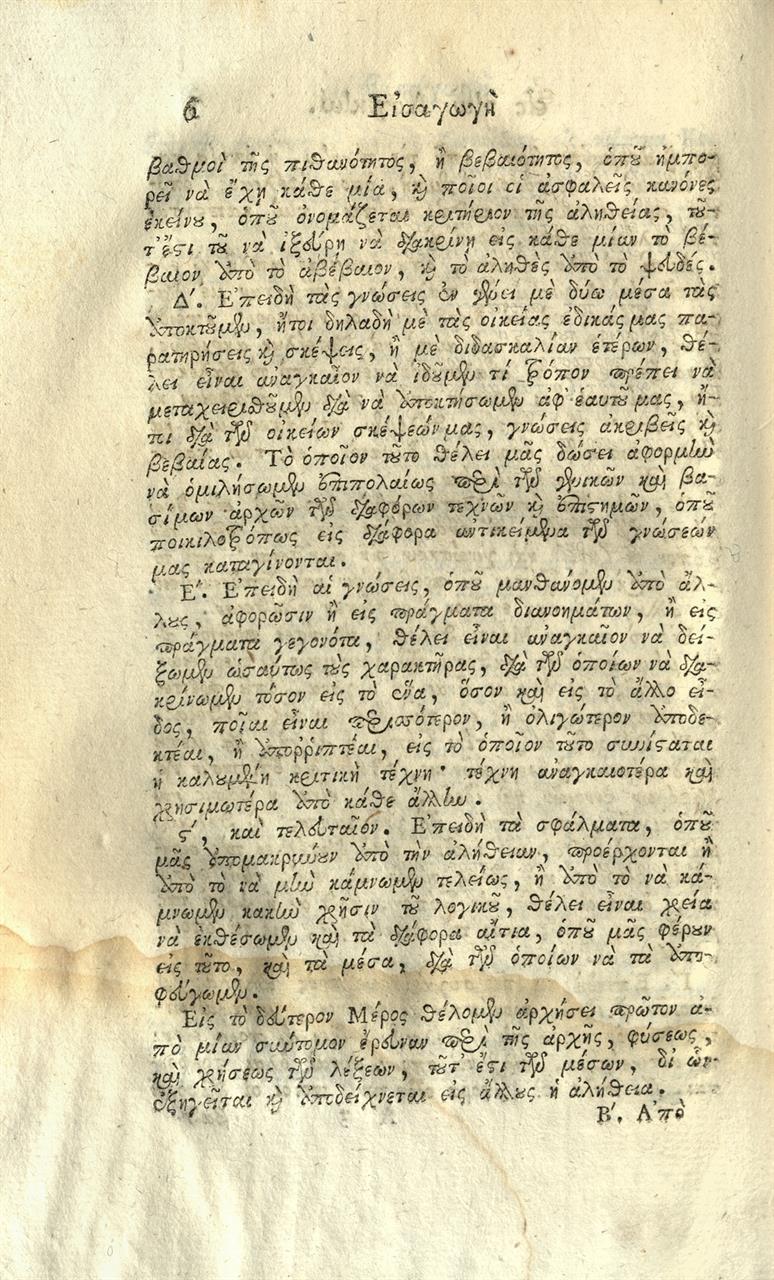 6 Εἰσαγωγὴ
βαθμοὶ τῆς πιθανότητος, ἢ βεβαιότητος, ὁποῦ ἠμπο-
ρεῖ νὰ ἔχῃ κάθε μία, καὶ ποῖοι οἱ ἀσφαλεῖς κανόνες
ἐκείνου, ὁποῦ ὀνομάζεται κριτήριον τῆς ἀληθείας, τοῦ-
τ' ἔστι τοῦ νὰ ἰξεύρῃ νὰ διακρίνῃ εἰς κάθε μίαν τὸ βέ-
βαιον ἀπὸ τὸ ἀβέβαιον, καὶ τὸ ἀληθὲς ἀπὸ τὸ ψευδές.
Δ'. Ἐπειδὴ τὰς γνώσεις ἐν γένει μὲ δύω μέσα τὰς
ἀποκτοῦμεν, ἤτοι δηλαδὴ μὲ τὰς οἰκείας ἐδικάς μας πα-
ρατηρήσεις καὶ σκέψεις, ἢ μὲ διδασκαλίαν ἑτέρων, θέ-
λει εἶναι ἀναγκαῖον νὰ ἰδοῦμεν τί τρόπον πρέπει νὰ
μεταχειρισθοῦμεν διὰ νὰ ἀποκτήσωμεν ἀφ' ἑαυτοῦ μας, ἤ-
τοι διὰ τῶν οἰκείων σκέψεών μας, γνώσεις ἀκριβεῖς καὶ
βεβαίας. Τὸ ὁποῖον τοῦτο θέλει μᾶς δώσει ἀφορμὴν
νὰ ὁμιλήσωμεν ἐπιπολαίως περὶ τῶν γενικῶν καὶ βα-
σίμων ἀρχῶν τῶν διαφόρων τεχνῶν καὶ ἐπιστημῶν, ὁποῦ
ποικιλοτρόπως εἰς διάφορα ἀντικείμενα τῶν γνώσεών
μας καταγίνονται.
Ε'. Ἐπειδὴ αἱ γνώσεις, ὁποῦ μανθάνομεν ἀπὸ ἄλ-
λους, ἀφορῶσιν ἢ εἰς πράγματα διανοημάτων, ἢ εἰς
πράγματα γεγονότα, θέλει εἶναι ἀναγκαῖον νὰ δεί-
ξωμεν ὡσαύτως τοὺς χαρακτῆρας, διὰ τῶν ὁποίων νὰ δια-
κρίνωμεν τόσον εἰς τὸ ἕνα, ὅσον καὶ εἰς τὸ ἄλλο εἶ-
δος, ποῖαι εἶναι περισσότερον, ἢ ὀλιγώτερον ἀποδε-
κτέαι, ἢ ἀποῤῥιπτέαι, εἰς τὸ ὁποῖον τοῦτο συνίσταται
ἡ καλουμένη κριτικὴ τέχνη· τέχνη ἀναγκαιοτέρα καὶ
χρησιμωτέρα ἀπὸ κάθε ἄλλην.
ς', καὶ τελευταῖον. Ἐπειδὴ τὰ σφάλματα, ὁποῦ
μᾶς ἀπομακρύνουν ἀπὸ τὴν ἀλήθειαν, προέρχονται ἢ
ἀπὸ τὸ νὰ μὴν κάμνωμεν τελείως, ἢ ἀπὸ τὸ νὰ κά-
μνωμεν κακὴν χρῆσιν τοῦ λογικοῦ, θέλει εἶναι χρεία
νὰ ἐκθέσωμεν καὶ τὰ διάφορα αἴτια, ὁποῦ μᾶς φέρουν
εἰς τοῦτο, καὶ τὰ μέσα, διὰ τῶν ὁποίων νὰ τὰ ἀπο-
φεύγωμεν.
Εἰς τὸ δεύτερον Μέρος θέλομεν ἀρχήσει πρῶτον ἀ-
πὸ μίαν σύντομον ἔρευναν περὶ τῆς ἀρχῆς, φύσεως,
καὶ χρήσεως τῶν λέξεων, τοῦτ' ἔστι τῶν μέσων, δι' ὧν
ἐξηγεῖται καὶ ἀποδείχνεται εἰς ἄλλους ἡ ἀλήθεια.
Β'. Ἀπὸ